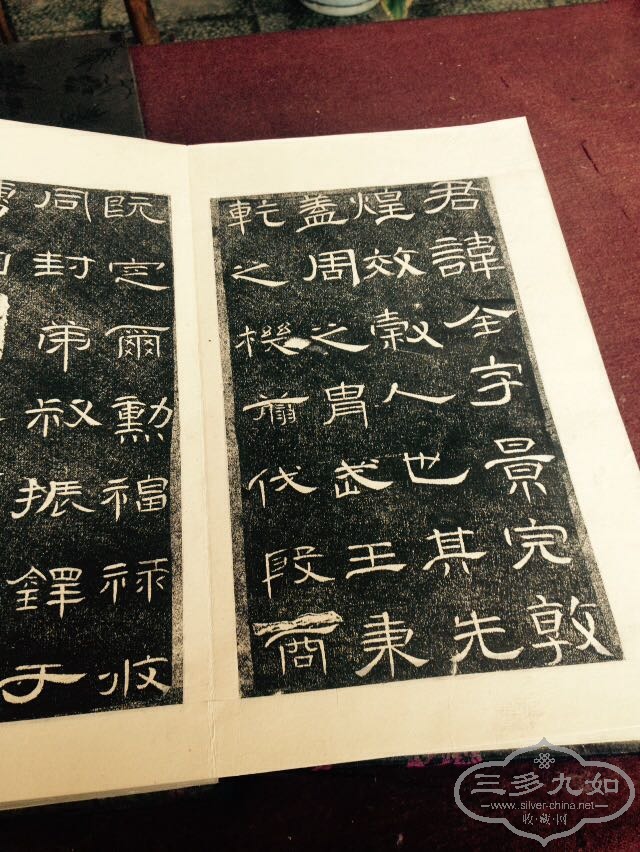 君諱全字景完敦
煌效穀人也其先
蓋周之胄武王秉
乾之機翦伐殷商
既定爾勳福祿攸
同封弟叔振鐸于
三多九如
www.silver-china.net
收·藏·网